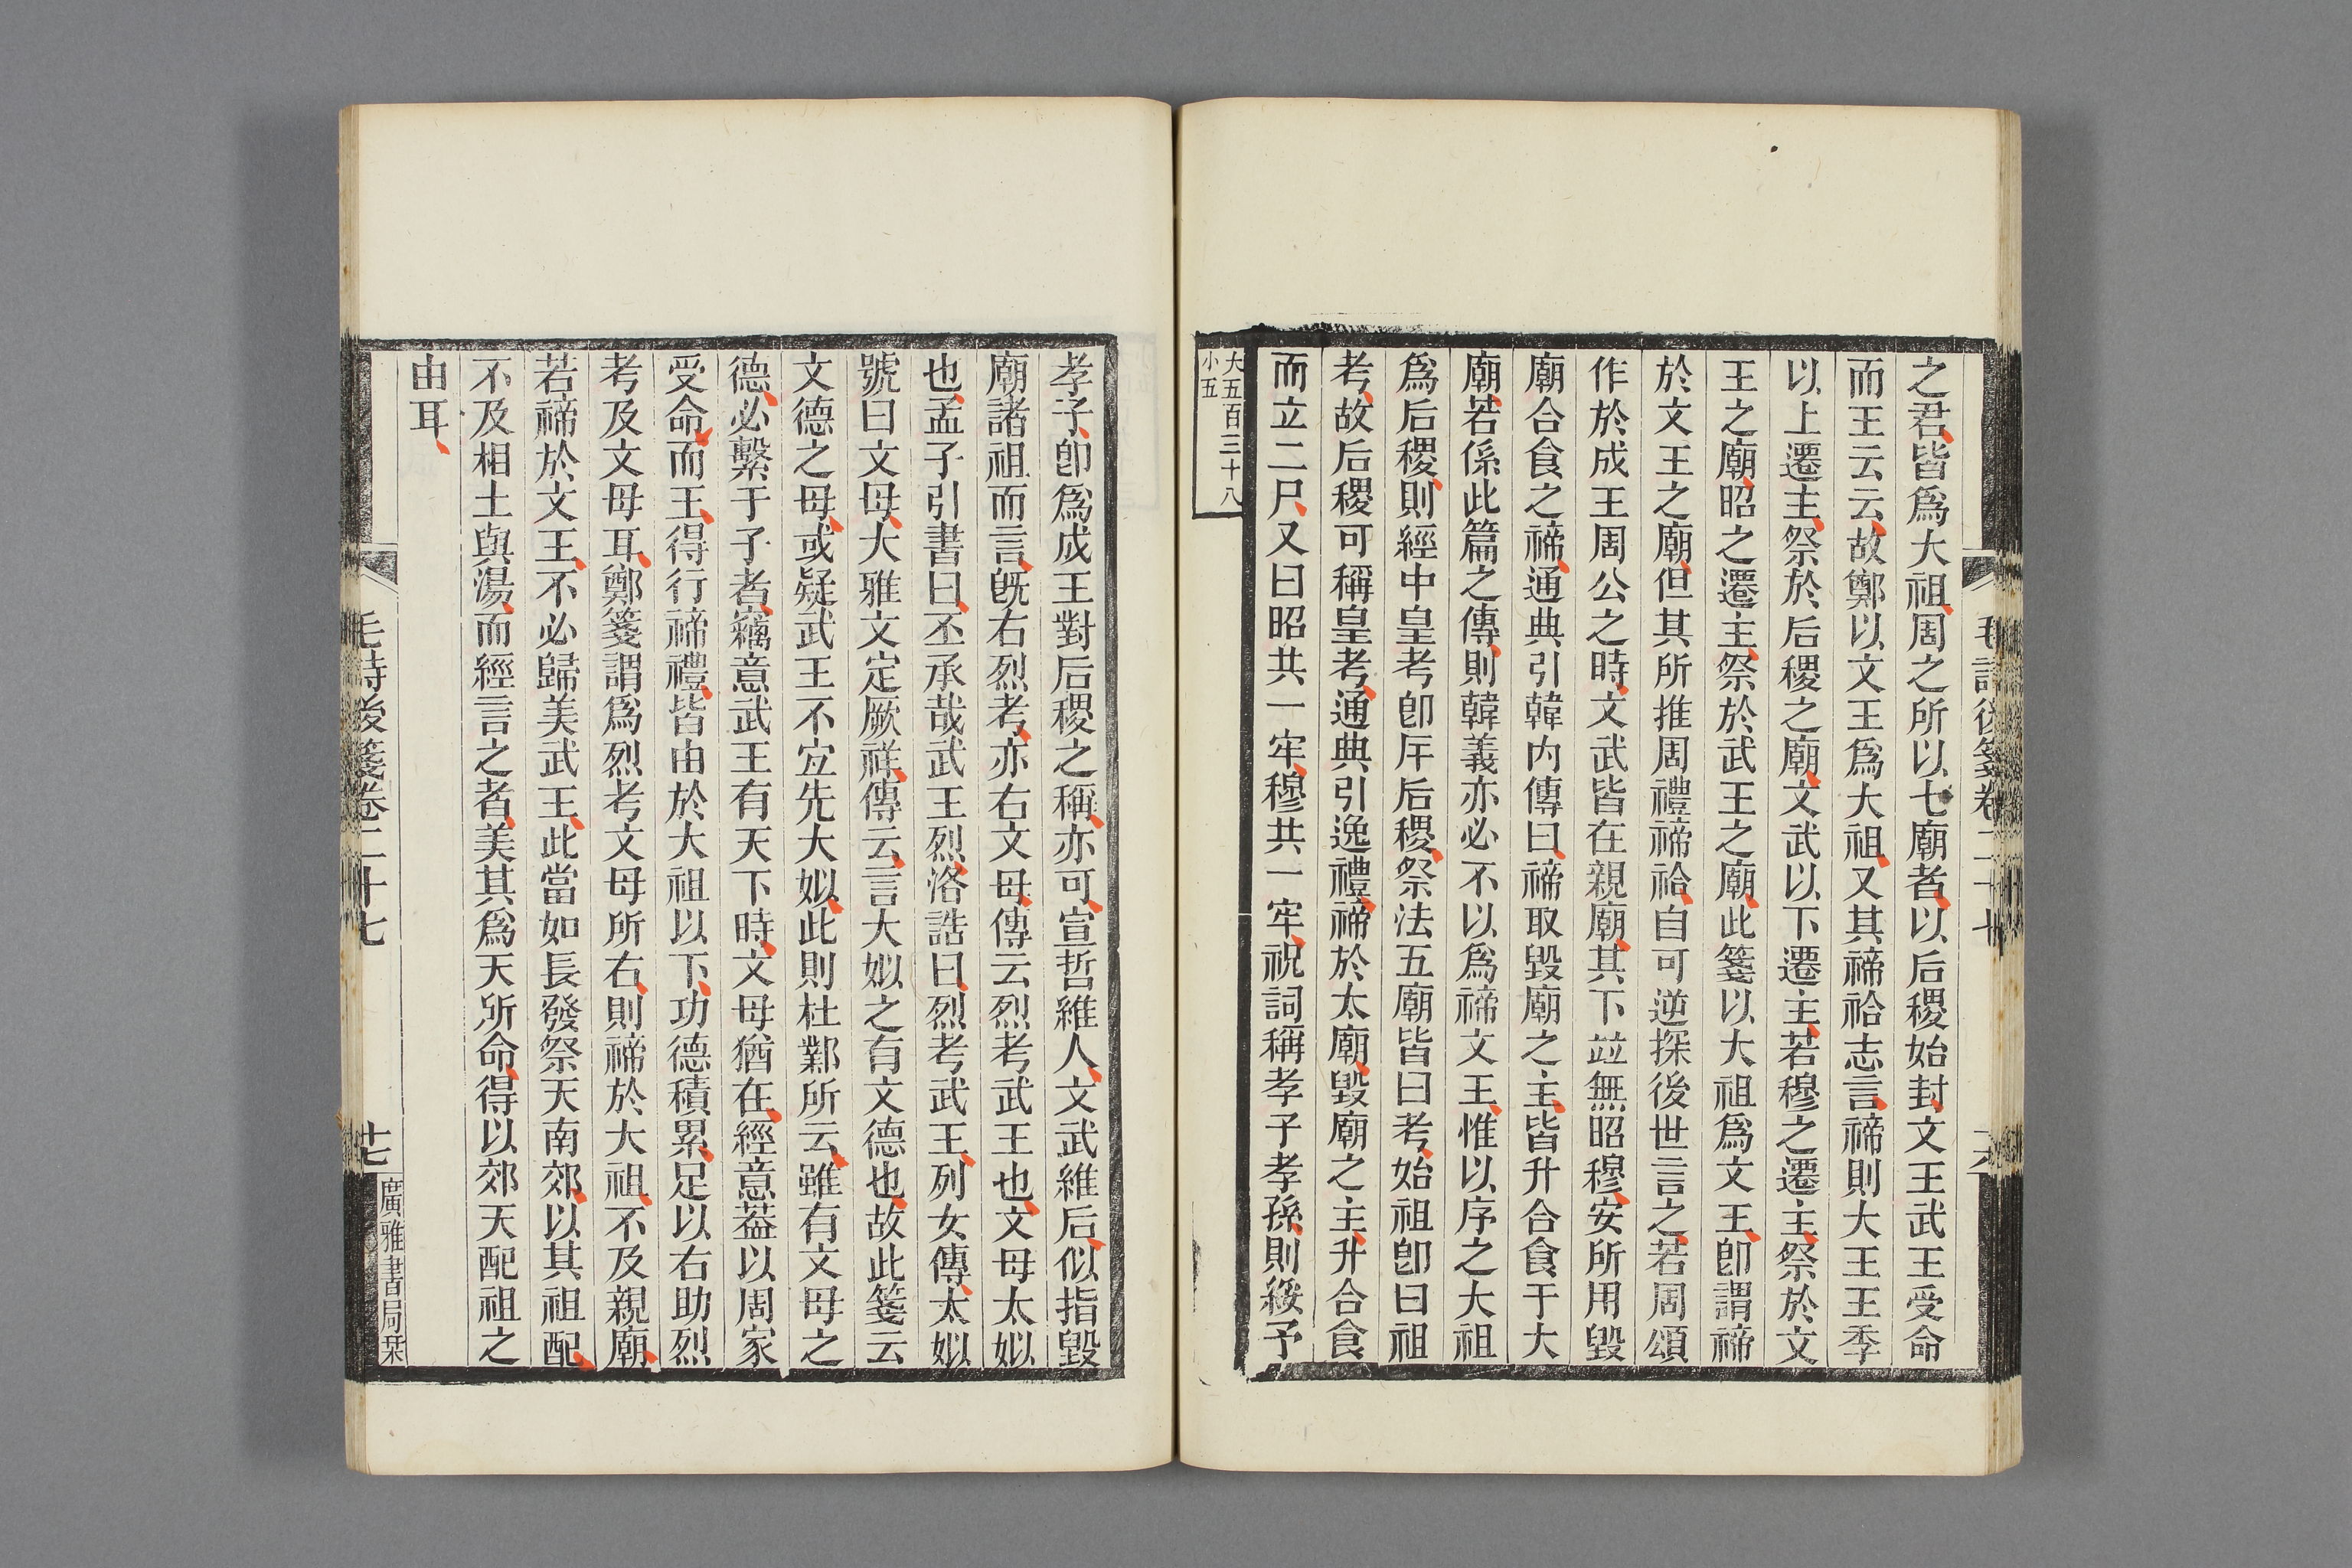 之君皆爲大祖周之所以七廟者以后稷始封文王武王受命
而王云云故鄭以文王爲大祖又其禘祫志言禘則大王王季
以上遷主祭於后稷之廟文武以下遷主若穆之遷主祭於文
王之廟昭之遷主祭於武王之廟此箋以大祖爲文王卽謂禘
於文王之廟但其所推周禮禘祫自可逆探後世言之若周頌
作於成王周公之時文武皆在親廟其下竝無昭穆安所用毀
廟合食之禘通典引韓內傳曰禘取毀廟之主皆升合食于大
廟若係此篇之傳則韓義亦必不以爲禘文王惟以序之大祖
爲后稷則經中皇考卽斥后稷祭法五廟皆曰考始祖卽曰祖
考故后稷可稱皇考通典引逸禮禘於太廟毀廟之主升合食
而立二尸又曰昭共一牢穆共一牢祝詞稱孝子孝孫則綏予
大五百三十八
小五
毛詩後箋卷二十七
孝子卽爲成王對后稷之稱亦可宣哲維人文武維后似指毀
廟諸祖而言旣右烈考亦右文母傳云烈考武王也文母太姒
也孟子引書曰丕承哉武王烈洛誥曰烈考武王列女傳太姒
號曰文母大雅文定厥祥傳云言大姒之有文德也故此箋云
文德之母或疑武王不宜先大姒此則杜鄴所云雖有文母之
德必繫于子者竊意武王有天下時文母猶在經意蓋以周家
受命而王得行禘禮皆由於大祖以下功德積累足以右助烈
考及文母耳鄭箋謂爲烈考文母所右則禘於大祖不及親廟
若禘於文王不必歸美武王此當如長發祭天南郊以其祖配
不及相土與湯而經言之者美其爲天所命得以郊天配祖之
由耳
毛詩後箋卷二十七
十七
廣雅書局栞